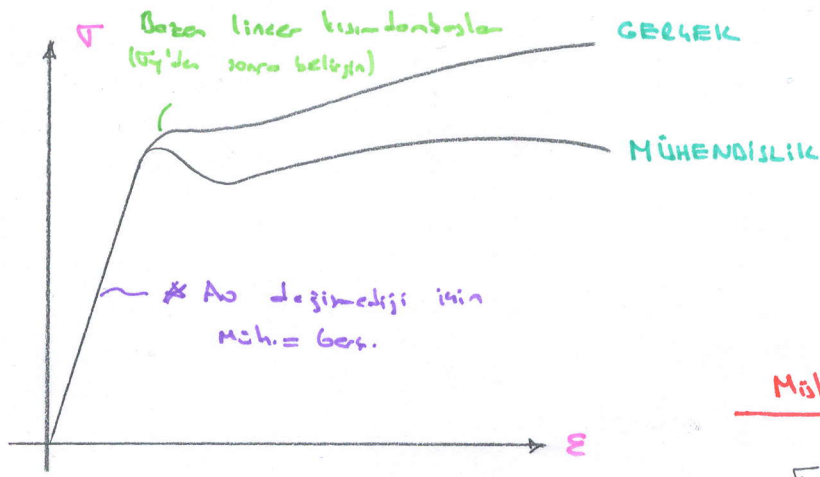 σ
Bazen lineer kısımdan başlar
(σy'den sonra belirgin)
GERÇEK
MÜHENDİSLİK
* A₀ değişmediği için
Müh. = Gerç.
Müh
ε